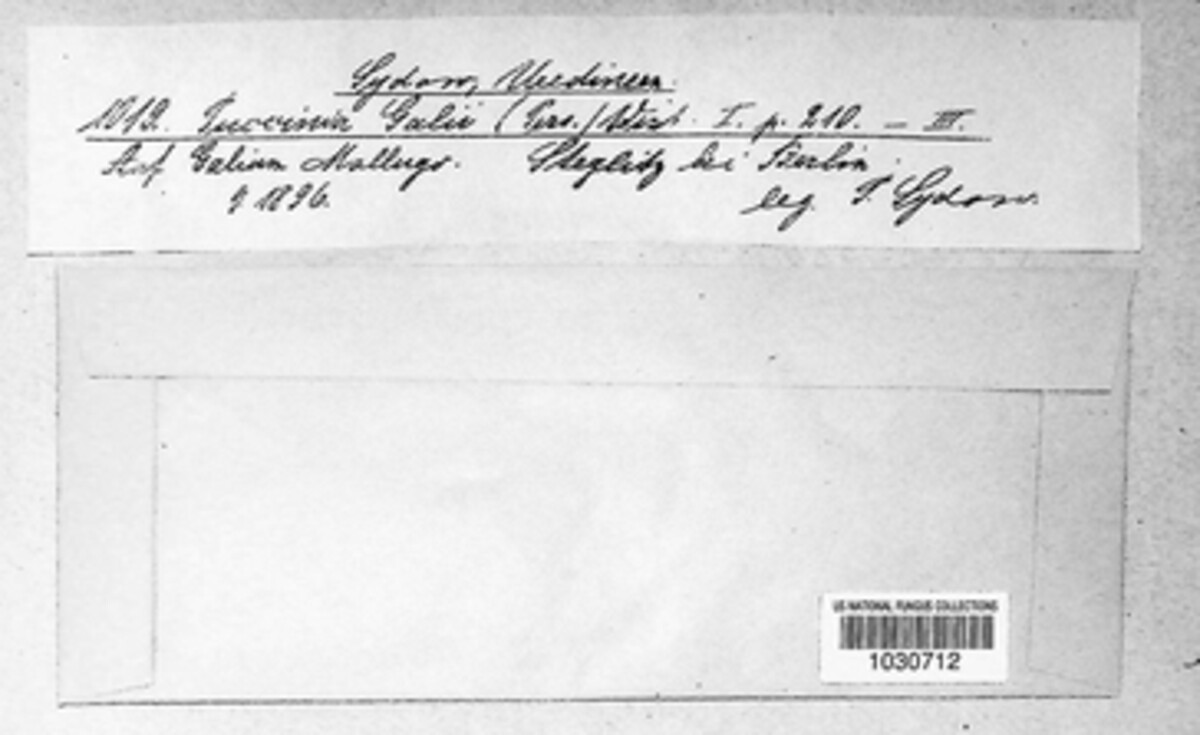 Sydow, Uredineen.
1012. Puccinia Galii (Pers.) Wint. I. p. 210. – III.
Auf Galium Mollugo. Steglitz bei Berlin.
9 1896. leg. P. Sydow.
US NATIONAL FUNGUS COLLECTIONS
1030712